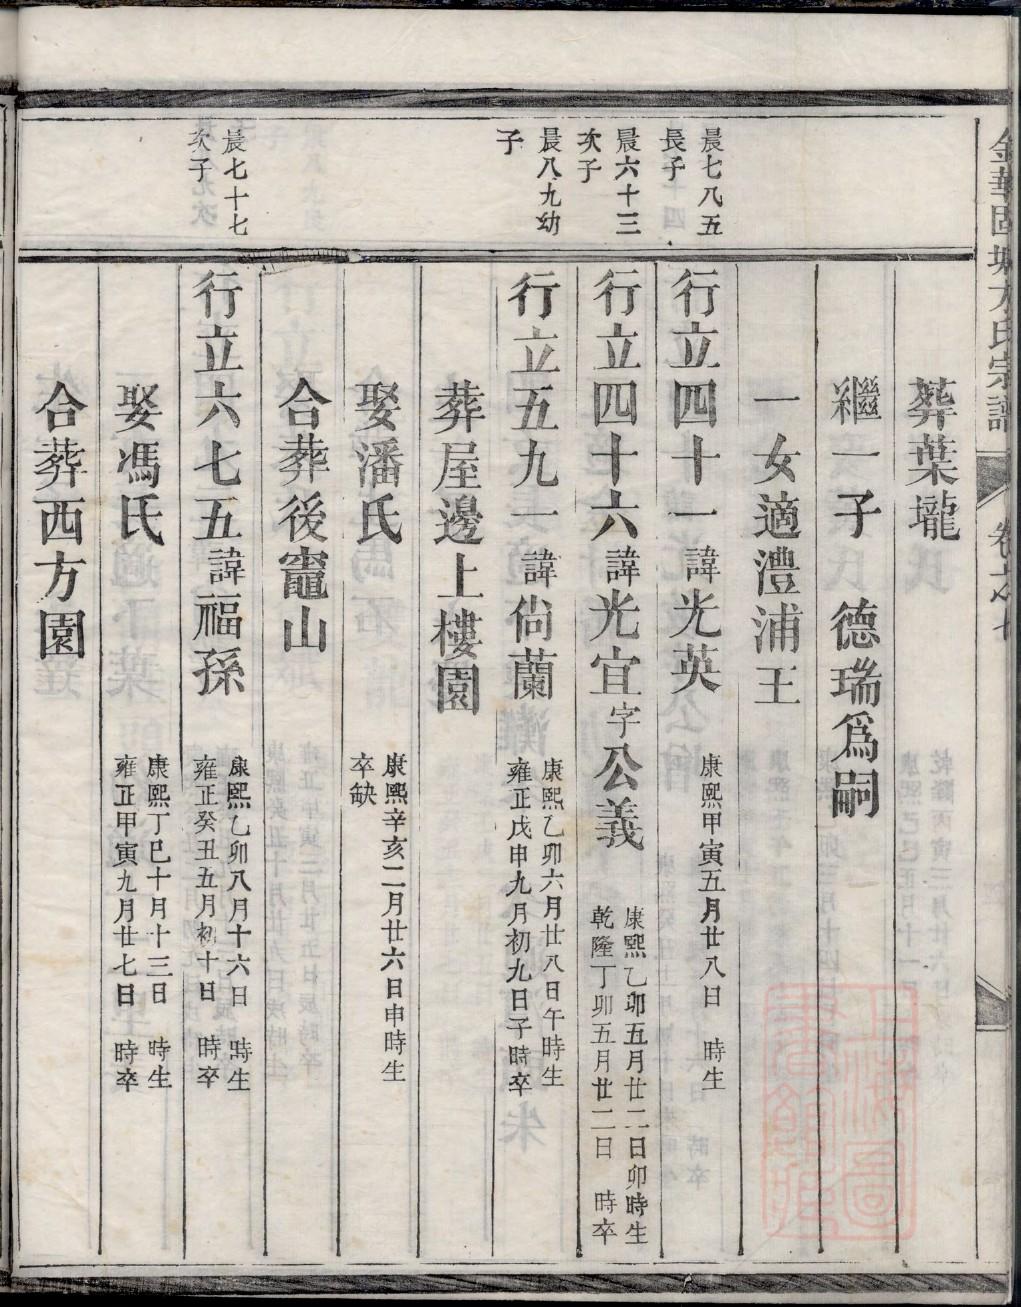 金華固塘方氏宗譜
卷之
葬葉壠
繼一子 德瑞爲嗣
一女適澧浦王
晨七八五
長子
行立四十一諱光英
康熙甲寅五月廿八日 時生
晨六十三
次子
行立四十六諱光宜字公義
康熙乙卯五月廿二日卯時生
乾隆丁卯五月廿二日 時卒
晨八九幼
子
行立五九一諱尙蘭
康熙乙卯六月廿八日午時生
雍正戊申九月初九日子時卒
葬屋邊上樓園
娶潘氏
康熙辛亥二月廿六日申時生
卒缺
合葬後竈山
晨七十七
次子
行立六七五諱福孫
康熙乙卯八月十六日 時生
雍正癸丑五月初十日 時卒
娶馮氏
康熙丁巳十月十三日 時生
雍正甲寅九月廿七日 時卒
合葬西方園